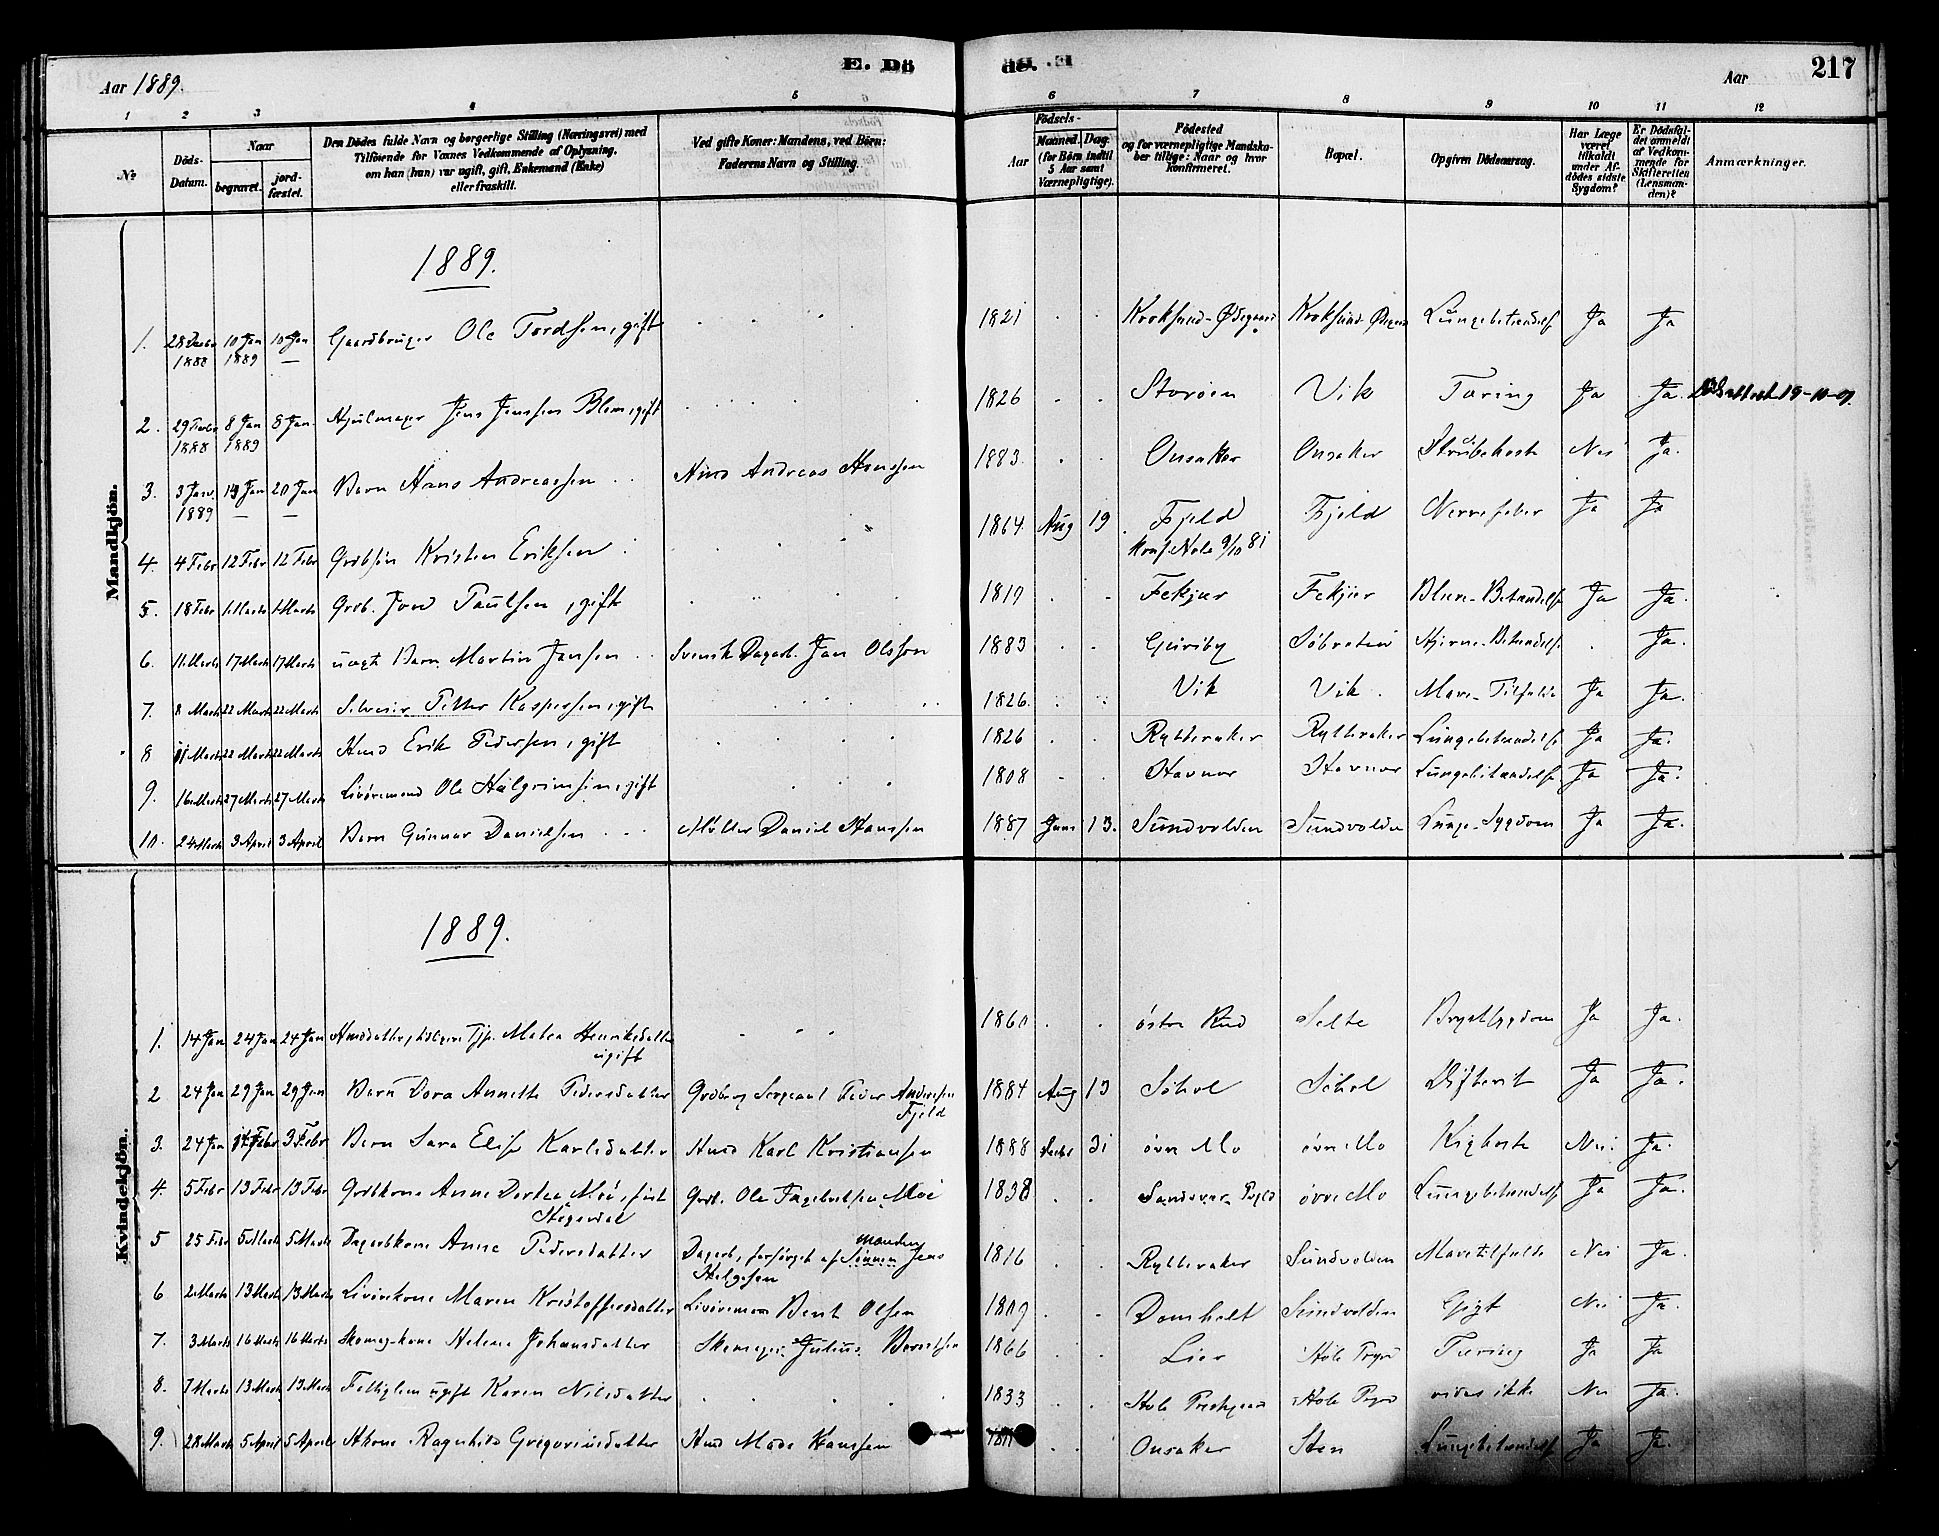 Aar 1889.
E. Dö
de.
Aar
217
1 2 3 4 5 6 7 8 9 10 11 12
No
Døds-Datum.
Naar
begravet.
jord-fæstet.
Den Dødes fulde Navn og borgerlige Stilling (Næringsvei) med
Tilføiende for Voxnes Vedkommende af Oplysning,
om han (hun) var ugift, gift, Enkemand (Enke)
eller fraskilt.
Ved gifte Koner: Mandens, ved Børn:
Faderens Navn og Stilling.
Fødsels-
Aar
Maaned. Dag.
(for Børn indtil
5 Aar samt
Værnepligtige).
Fødested
og for værnepligtige Mandska-
ber tillige: Naar og hvor
konfirmeret.
Bopæl.
Opgiven Dødsaarsag.
Har Læge
været
tilkaldt
under Af-
dødes sidste
Sygdom?
Er Dødsfal-
det anmeldt
af Vedkom-
mende for
Skifteretten
(Lensman-
den)?
Anmærkninger.
Mandkjön.
1889.
1. 28 Decbr 1888 10 Jan 1889 10 Jan — Gaardbruger Ole Tordsen, gift 1821 Kroksund-Ødegaard Kroksund Lungebetændelse Ja Ja
2. 29 Decbr 1888 8 Jan 1889 8 Jan Hjulmager Jens Jenssen Blom, gift 1826 Storøen Vik Tæring Ja Ja. 19-10-01.
3. 3 Janr. 1889 19 Jan — 20 Jan — Barn Hans Andreassen Hmd Andreas Hanssen 1883 Onsaker Onsaker Strubehoste Nei Ja.
4. 4 Febr 12 Febr 12 Febr Grdbsøn Kristen Eriksen 1864 Aug 19 Fjeld Konf. Hole 9/10 81 Fjeld Nervefeber Ja Ja
5. 18 Febr 1 Marts 1 Marts Grdb. Jord Paulsen, gift 1819 Fekjær Fekjær Blære-Betændelse Ja Ja.
6. 11 Marts 17 Marts 17 Marts uægt Barn Martin Jansen Svensk Dagarb. Jan Olsson 1883 Guriby Søbraten Hjerne-Betændelse Ja.
7. 8 Marts 22 Marts 22 Marts Petter Kaspersen, gift 1826. Vik Vik Mave-Tilfælde Ja Ja.
8 11 Marts 22 Marts 22 Marts Hmd Erik Pedersen, gift 1826 Rytteraker Rytteraker Lungebetændelse Ja Ja.
9. 16 Marts 27 Marts 27 Marts Livøremand Ole Halgrimsen, gift 1808 Stavnor Stavnor Lungebetændelse Ja Ja.
10. 24 Marts 3 April 3 April Barn Gunnar Danielsen Møller Daniel Hanssen 1887 Juni 13. Sundvolden Sundvolden Lunge-Sygdom Ja Ja.
Kvindekjön.
1889.
1. 14 Jan 24 Jan 24 Jan Hmdsdatter, Tjp. Matea Henriksdatter ugift 1860 østre Rud Selte Brystsygdom Ja Ja.
2 24 Jan 29 Jan 29 Jan Barn Dora Annette Pedersdatter Grdbrug Sergeant Peder Andersen Fjeld 1884 Aug 13 Søhol Søhol Difterit Ja Ja.
3. 24 Jan 3 Febr Barn Sara Elise Karlsdatter Hmd Karl Kristiansen 1888 Decbr 31 øvre Mo øvre Mo Kighoste Nei Ja.
4. 5 Febr 13 Febr 13 Febr Grdbkone Anne Dortea Moe, født Grdb. Ole Moe 1838 Sandsvær øvre Mo Lungebetændelse Ja Ja.
5 25 Febr 5 Marts 5 Marts Dagarbkone Anne Pedersdatter Dagarb., forsørget af Sønnen manden Jens Helgesen 1816 Rytteraker Sundvolden Mavetilfælde Nei Ja.
6 2 Marts 13 Marts 13 Marts Livørekone Maren Kristoffersdatter Livøremann Bent Olsen 1809 Domholt Sundvolden Gigt Nei Ja.
7. 3 Marts 16 Marts 16 Marts Skomagkone Helene Johansdatter Skomager Julius Berntsen 1866 Lier Hole Prgd Tæring Ja Ja
8. 7 Marts 13 Marts 13 Marts Fattiglem ugift Karen Nilsdatter 1833 Hole Prestgaard Hole Prgd vides ikke Nei Ja.
9. 28 Marts 5 April 5 April Hkone Ragnhild Gregoriusdatter Hmd Mads Hanssen Onsaker Sten Lungebetændelse Ja Ja.